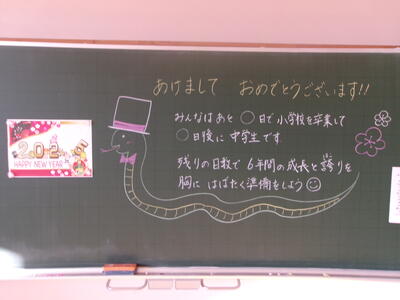 あけまして おめでとうございます!!
みんなはあと ○日で小学校を卒業して
○日後に 中学生です
残りの日数で 6年間の成長と誇りを
胸に はばたく準備をしよう
HAPPY NEW YEAR